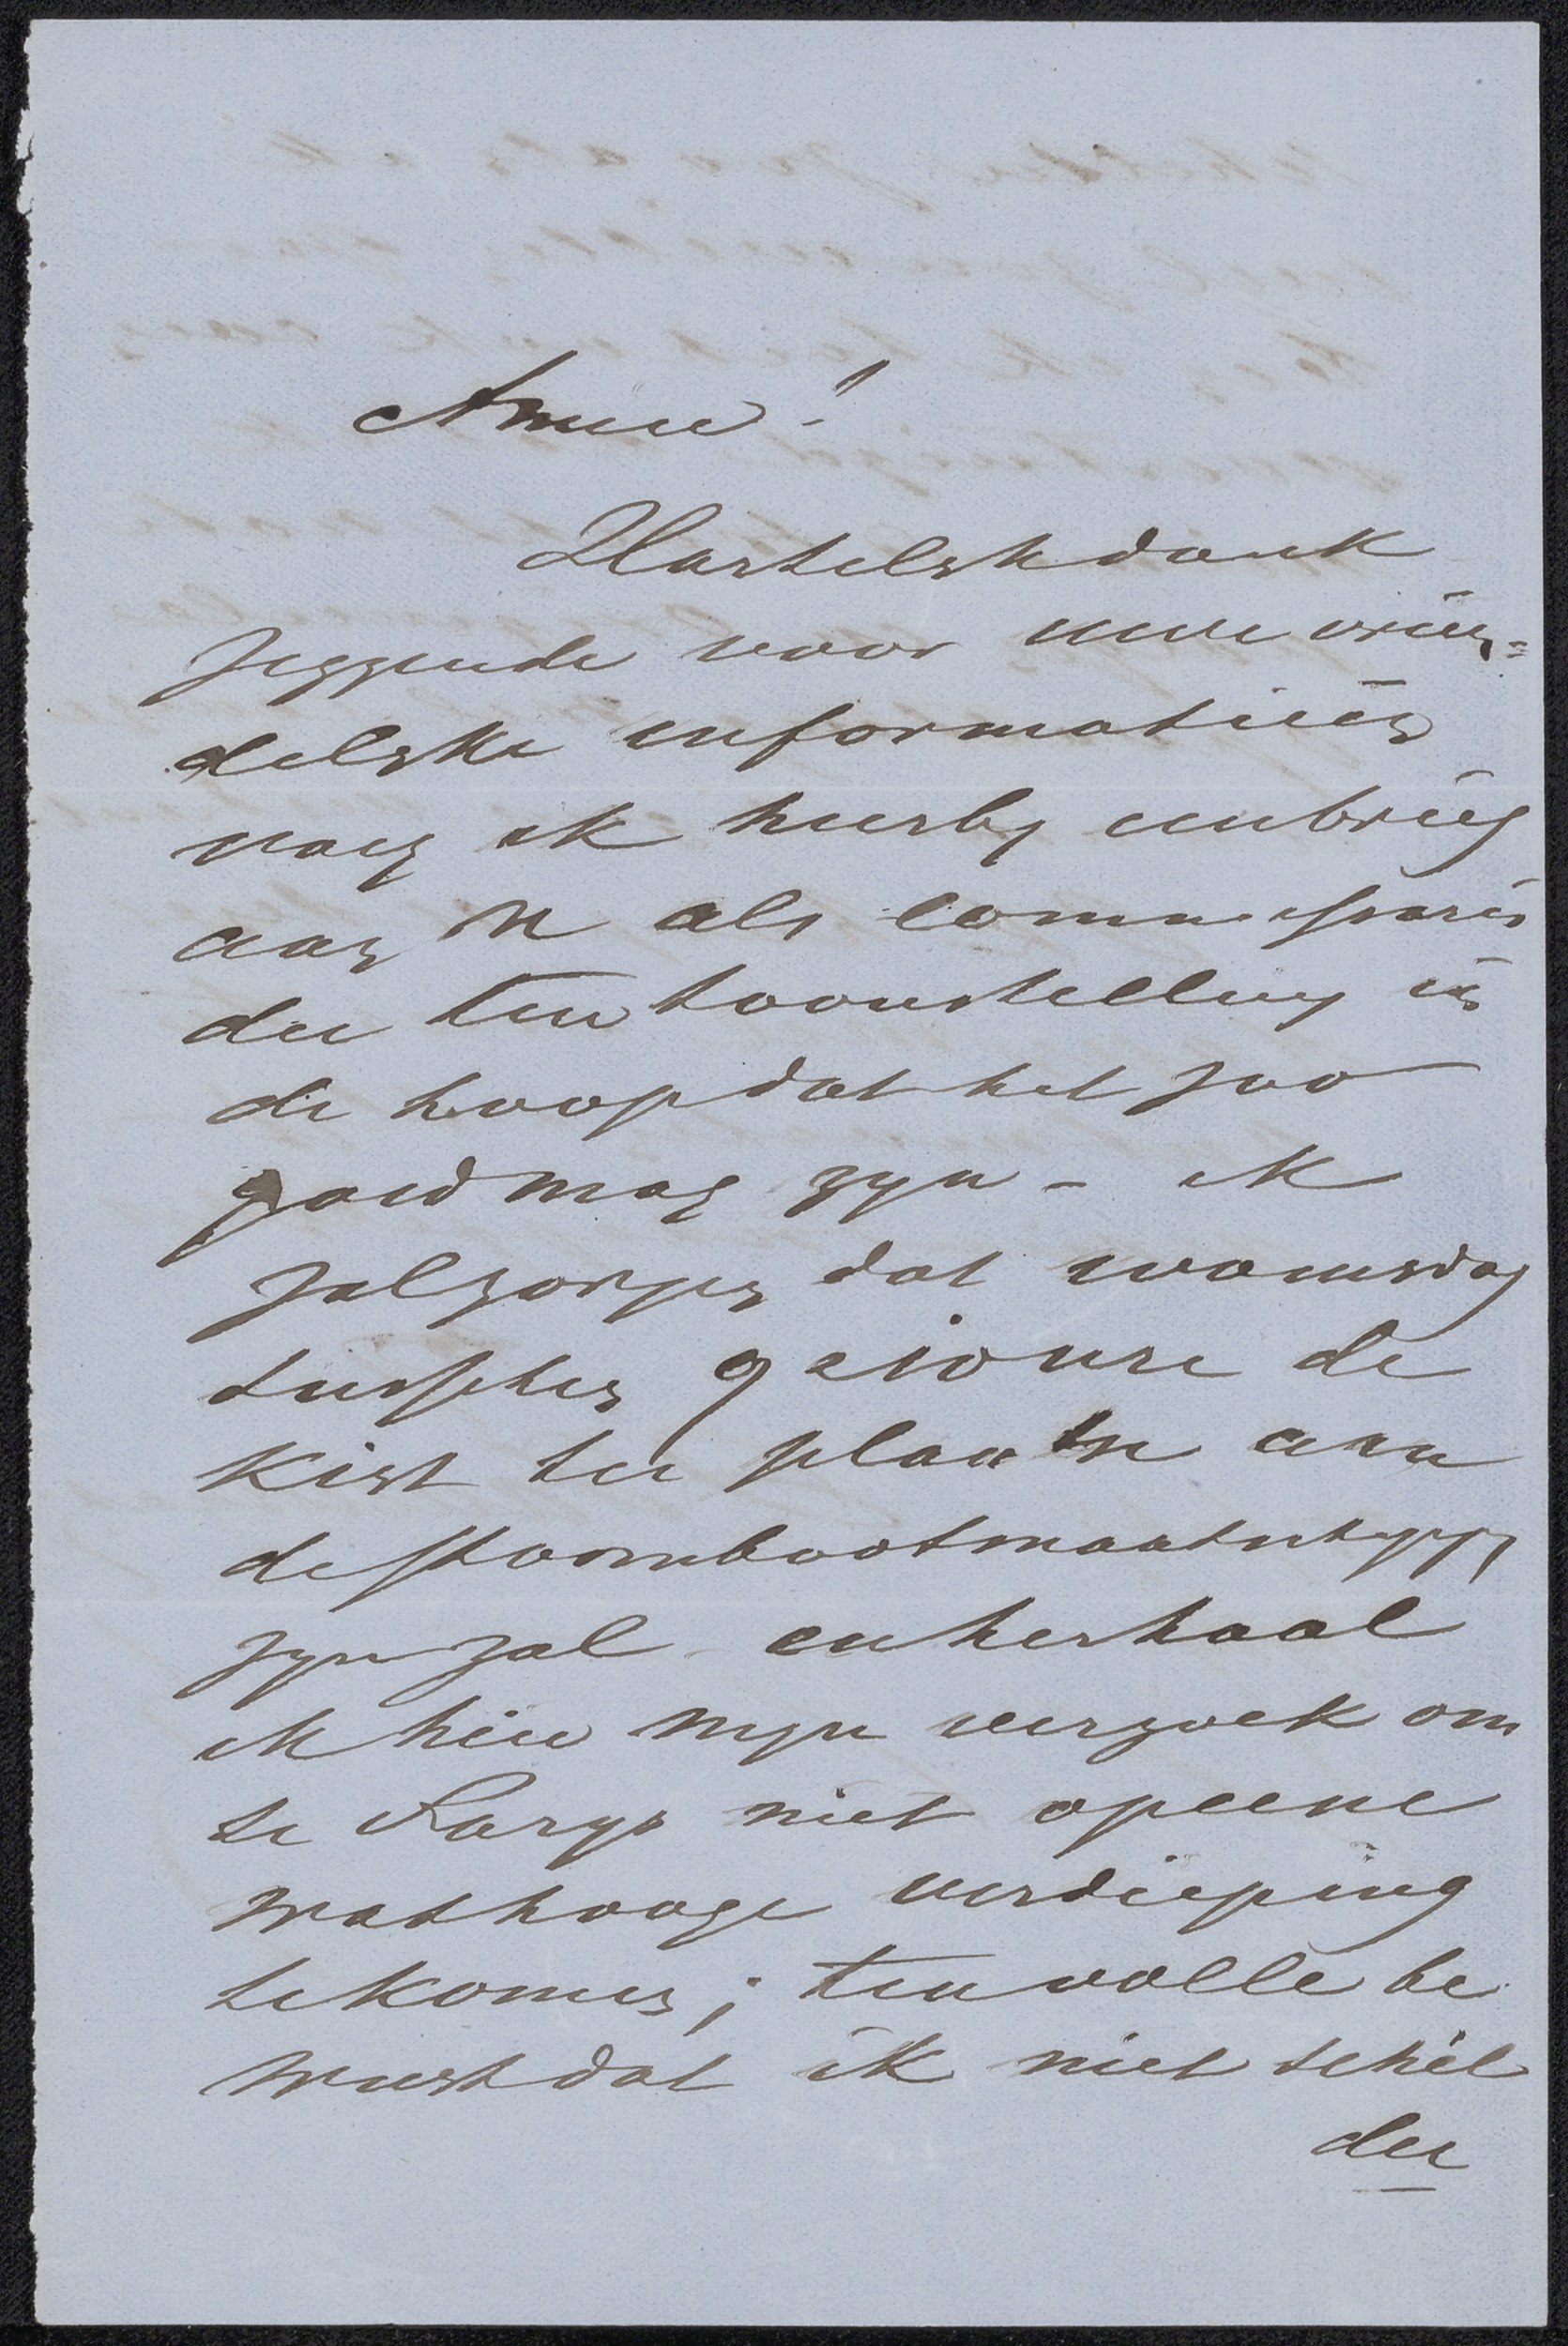 Amice!
Hartelyk dank
zeggende voor uwe vrien=
delyke informatiën
voeg ik hierby een brief
aan U als commissaris
der Tentoonstelling in
de hoop dat het zoo
goed mag zyn - ik
zal zorgen dat woensdag
tusschen 9 a 10 ure de
kist ter plaatse aan
de stoombootmaatschappy
zyn zal en herhaal
ik hier myn verzoek om
te Parys niet op eene
wat hooge verdieping
te komen; ten volle be
wust dat ik niet schil
der